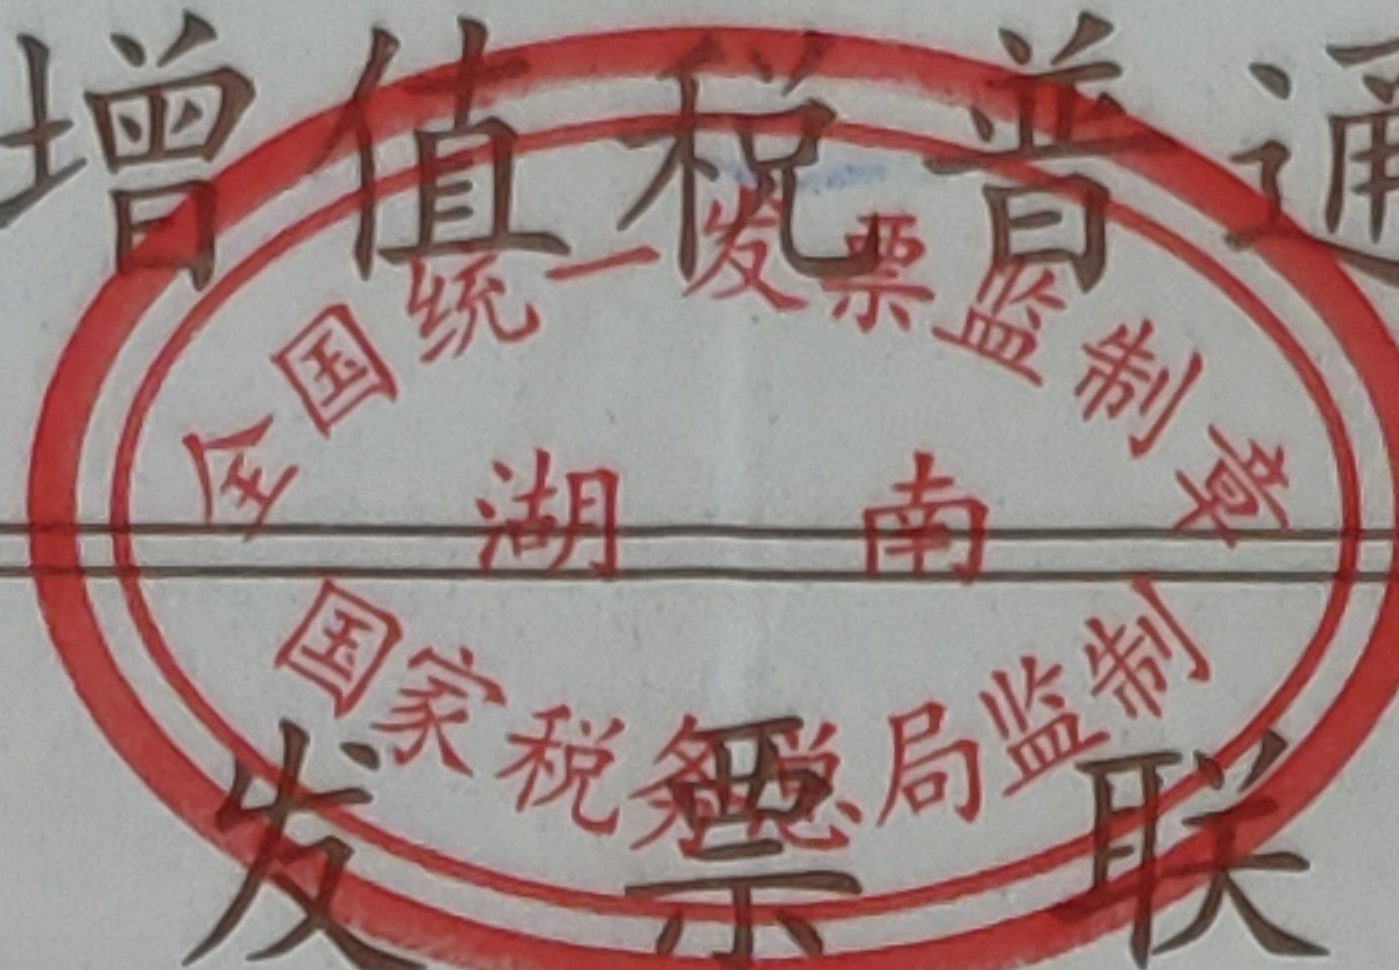 增值税普通
全国统一发票监制章
湖 南
国家税务总局监制
发票联